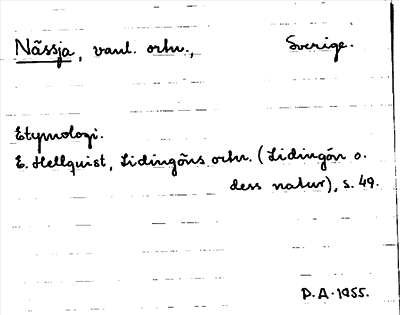 Nässja, vanl. ortn., Sverige.
Etymologi.
E. Hellquist, Lidingöns ortn. (Lidingön o.
dess natur), s. 49.
P.A. 1955.